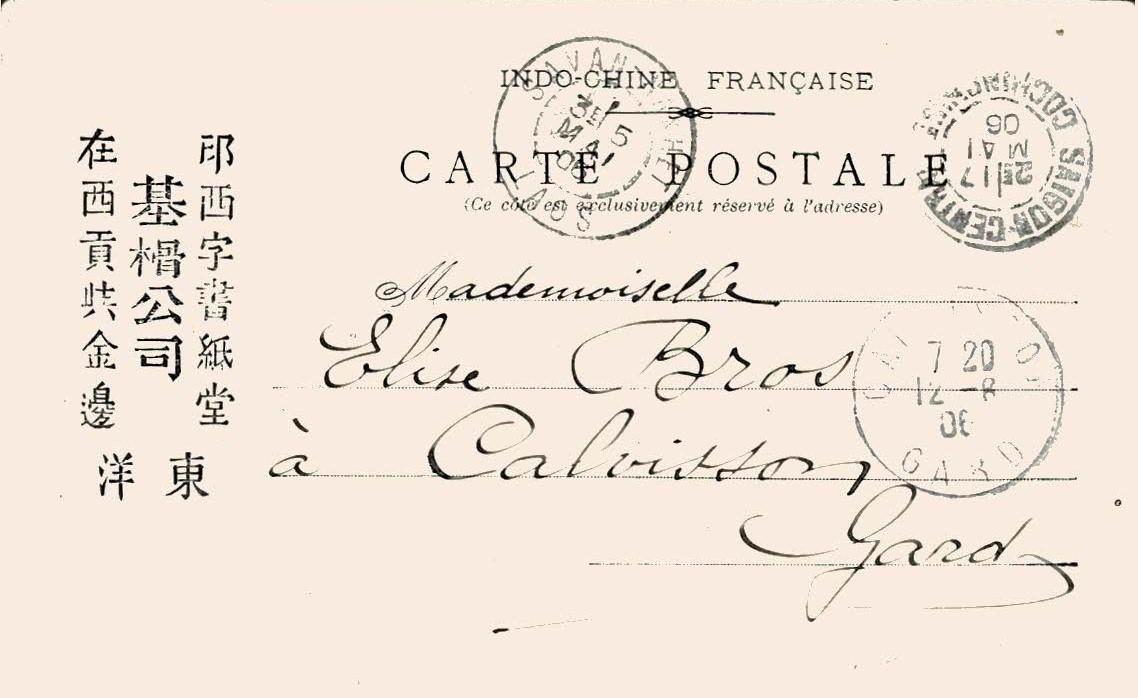 INDO-CHINE FRANÇAISE
CARTE POSTALE
(Ce côté est exclusivement réservé à l'adresse)
Mademoiselle
Elise Bros
à Calvisson
Gard
西字書紙堂
基榾公司
在西貢共金邊
東洋
SAVANNAKHET
3E 5
MAI
06
LAOS
SAIGON-CENTRAL
2E 17
MAI
06
COCHINCHINE
7 20
12 -6
06
GARD